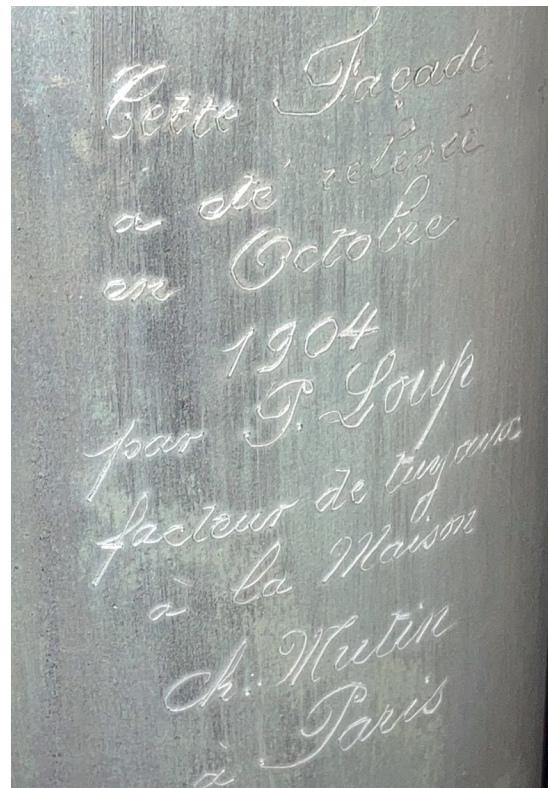 Cette Façade
à été relevée
en Octobre
1904
par P. Loup
facteur de tuyaux
à la Maison
ch. Mutin
à Paris